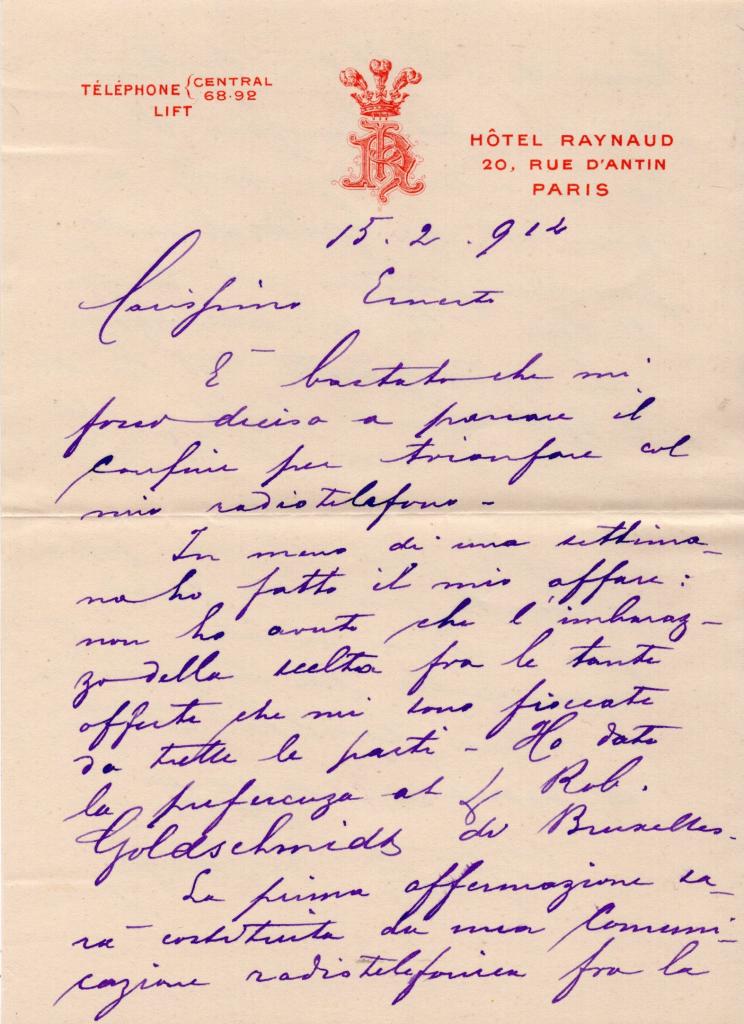 TÉLÉPHONE { CENTRAL
68-92
LIFT
HÔTEL RAYNAUD
20, RUE D'ANTIN
PARIS
15.2.912
Carissimo Ernesto
È bastato che mi
fossi deciso a passare il
confine per trionfare col
mio radiotelefono -
In meno di una settima-
na ho fatto il mio affare:
non ho avuto che l'imbaraz-
zo della scelta fra le tante
offerte che mi sono fioccate
da tutte le parti - Ho dato
la preferenza al Rob.
Goldschmidt di Bruxelles.
La prima affermazione sa-
rà costituita da una Comuni-
cazione radiotelefonica fra la